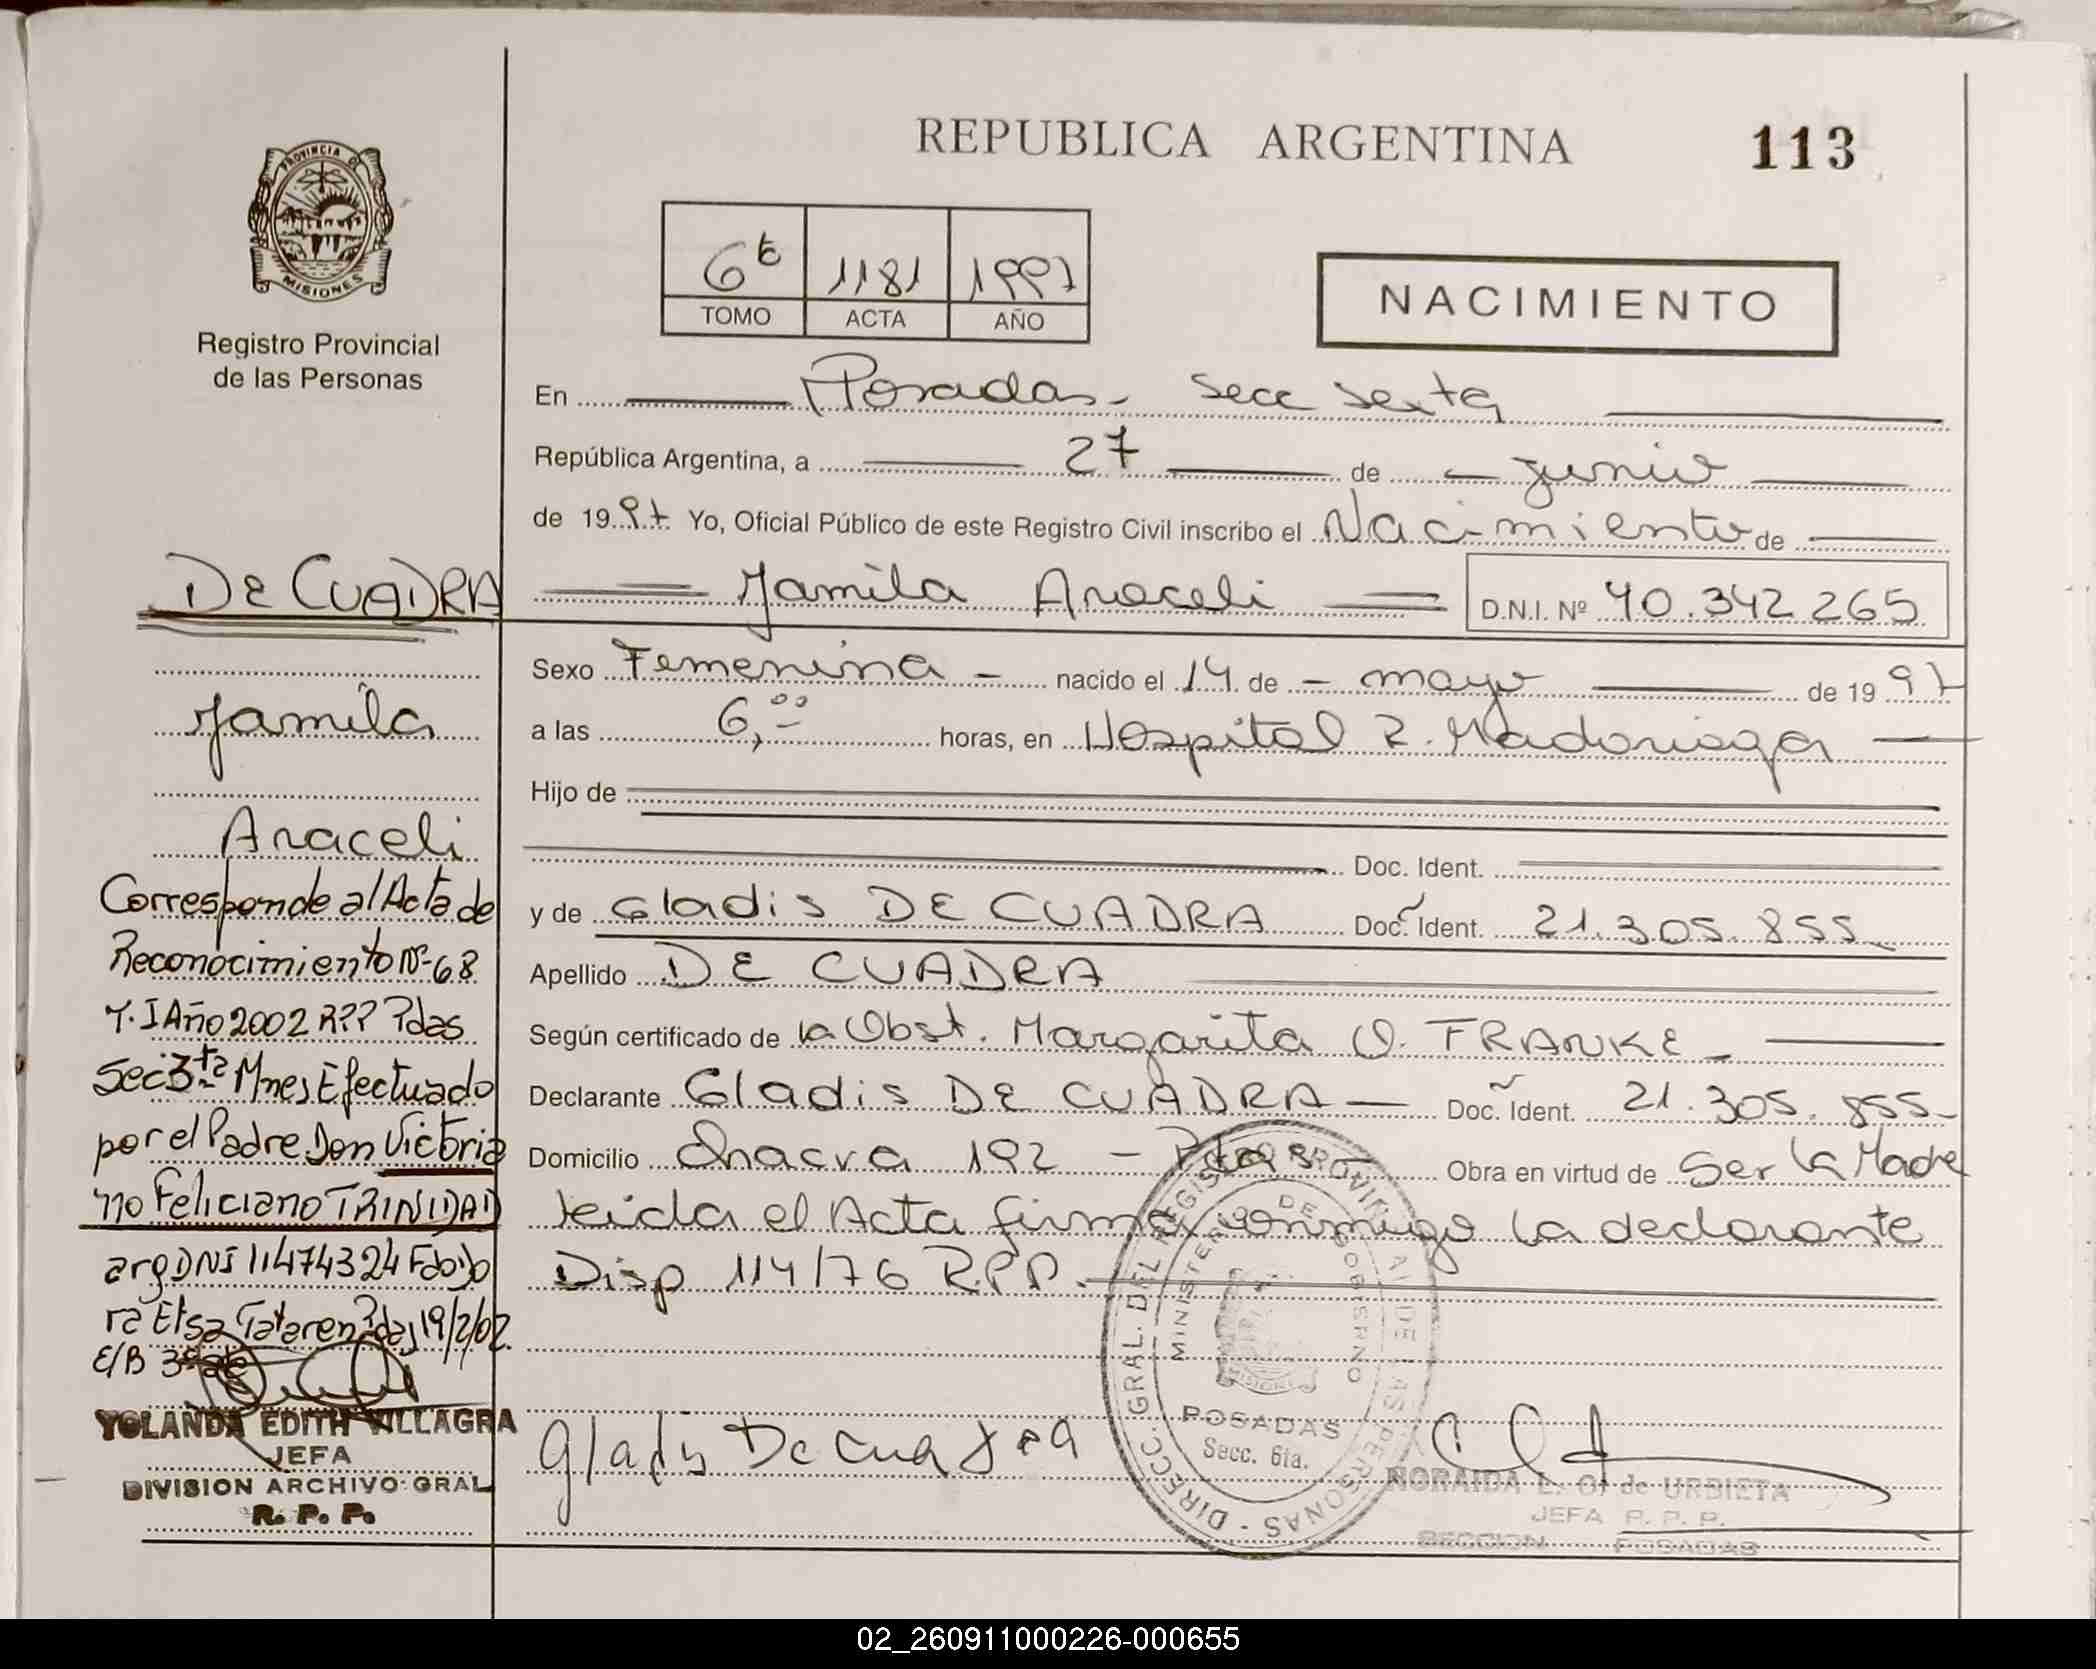 REPUBLICA ARGENTINA
113
PROVINCIA DE
MISIONES
Registro Provincial
de las Personas
6ta 1181 1997
TOMO ACTA AÑO
NACIMIENTO
En Posadas - Secc Sexta
República Argentina, a 27 de - junio
de 1997. Yo, Oficial Público de este Registro Civil inscribo el Nacimiento de
Yamila Araceli D.N.I. Nº 40.342 265
Sexo Femenina - nacido el 14 de - mayo de 1997
a las 6,00 horas, en Hospital R. Madariaga
Hijo de
Doc. Ident.
y de Gladis DE CUADRA Doc. Ident. 21.305.855
Apellido DE CUADRA
Según certificado de la Obst. Margarita O. FRANKE
Declarante Gladis DE CUADRA Doc. Ident. 21.305.855
Domicilio Chacra 192 - Pdas Obra en virtud de Ser la Madre
leida el Acta firma conmigo la declarante
Disp 114/76 R.P.P.
DE CUADRA
Yamila
Araceli
Corresponde al Acta de
Reconocimiento Nº 68
T. I Año 2002 R?? Pdas
Sec 3ta Mnes Efectuado
por el Padre Don Victoria
no Feliciano TRINIDAD
arg DNI 11474324
19/2/02.
E/B
YOLANDA EDITH VILLAGRA
JEFA
DIVISION ARCHIVO GRAL
R. P. P.
Gladis De Cuadra
DIRECC. GRAL. DEL REGISTRO PROVINCIAL DE LAS PERSONAS
MINISTERIO DE GOBIERNO
MISIONES
POSADAS
Secc. 6ta.
NORAIDA L. O. de URBIETA
JEFA R. P. P.
SECCION POSADAS
02_260911000226-000655